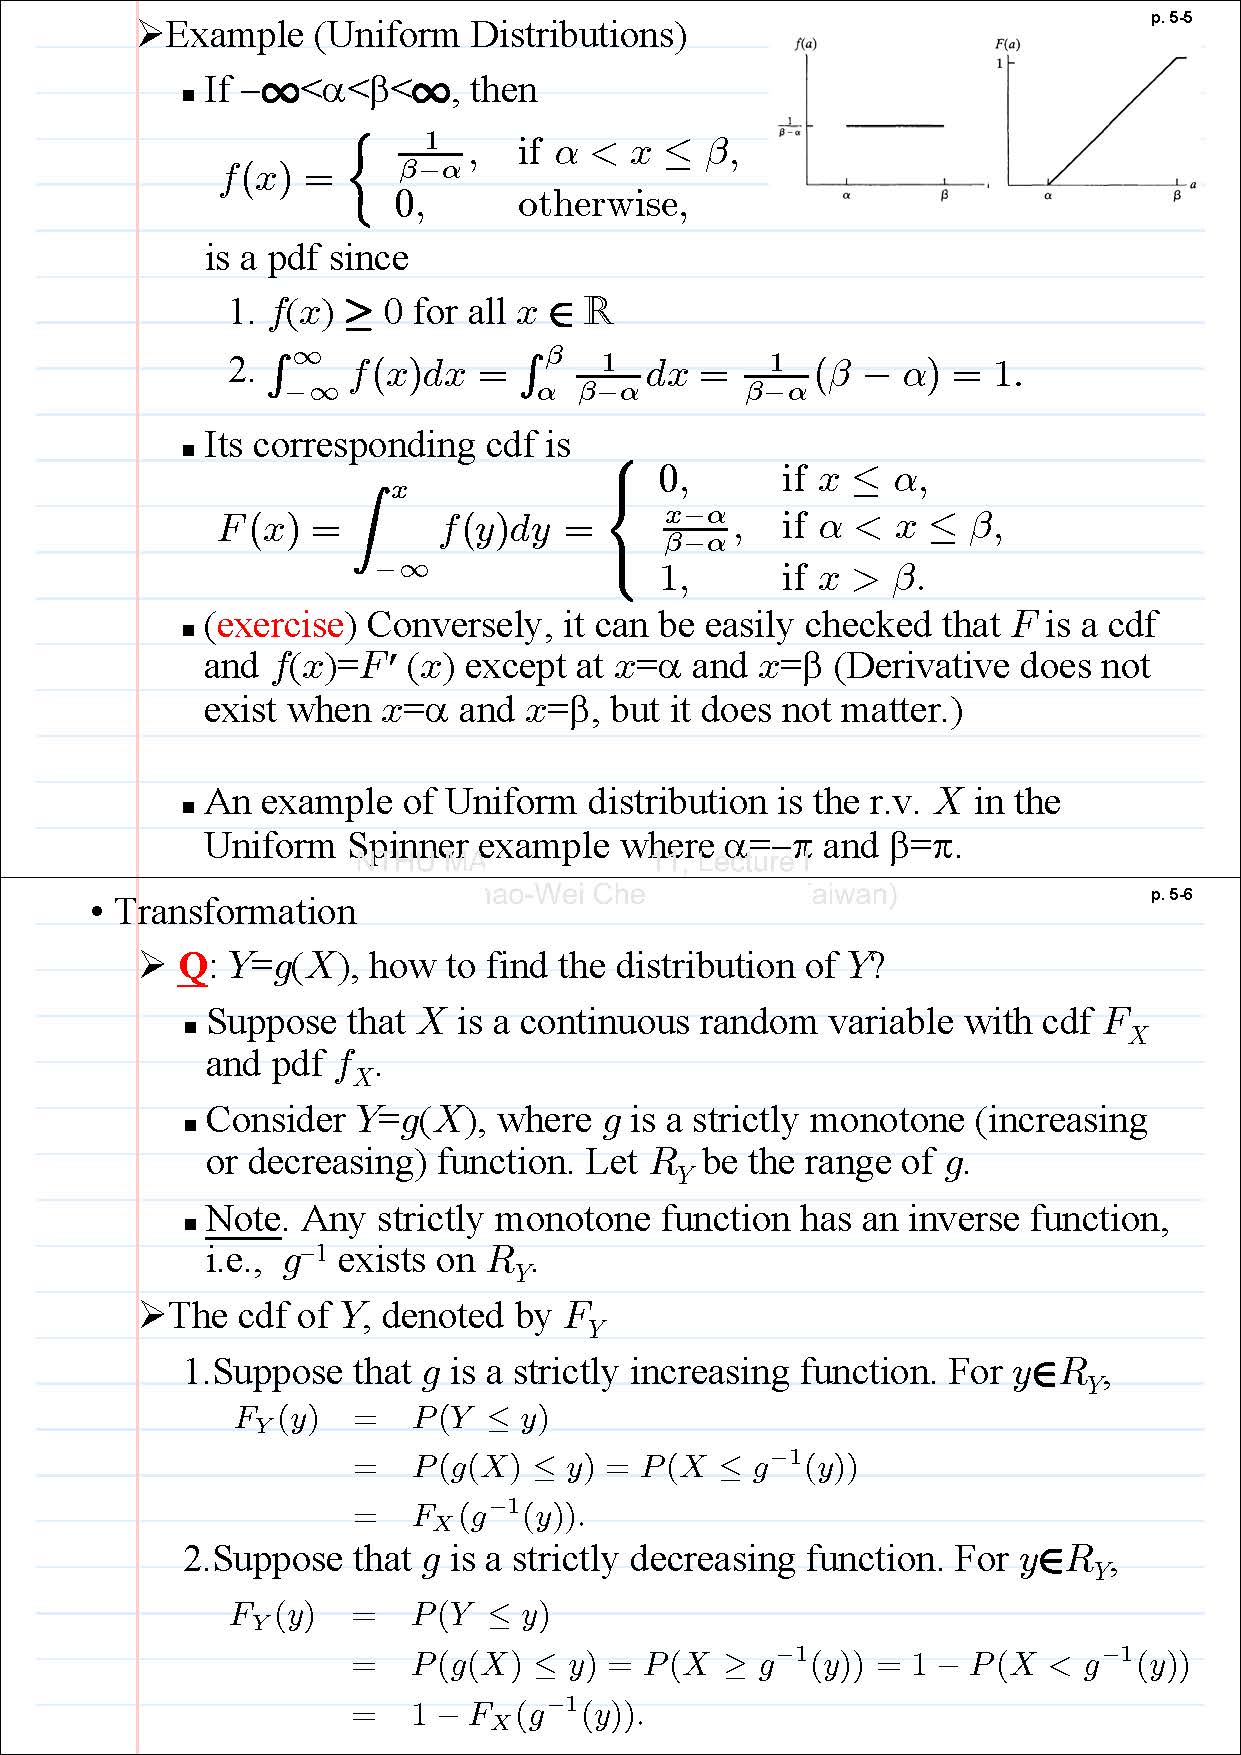 p. 5-5
➢Example (Uniform Distributions)
▪ If –∞<α<β<∞, then
f(x) = { 1/(β−α), if α < x ≤ β,
0, otherwise,
f(a)
1/(β−α)
α β
F(a)
1
α β a
is a pdf since
1. f(x) ≥ 0 for all x ∈ ℝ
2. ∫_{−∞}^{∞} f(x)dx = ∫_α^β 1/(β−α) dx = 1/(β−α) (β − α) = 1.
▪ Its corresponding cdf is
F(x) = ∫_{−∞}^{x} f(y)dy = { 0, if x ≤ α,
(x−α)/(β−α), if α < x ≤ β,
1, if x > β.
▪ (exercise) Conversely, it can be easily checked that F is a cdf
and f(x)=F′ (x) except at x=α and x=β (Derivative does not
exist when x=α and x=β, but it does not matter.)
▪ An example of Uniform distribution is the r.v. X in the
Uniform Spinner example where α=–π and β=π.
NTHU MA 11, Lecture
hao-Wei Che aiwan)
p. 5-6
• Transformation
➢ Q: Y=g(X), how to find the distribution of Y?
▪ Suppose that X is a continuous random variable with cdf F_X
and pdf f_X.
▪ Consider Y=g(X), where g is a strictly monotone (increasing
or decreasing) function. Let R_Y be the range of g.
▪ Note. Any strictly monotone function has an inverse function,
i.e., g⁻¹ exists on R_Y.
➢The cdf of Y, denoted by F_Y
1.Suppose that g is a strictly increasing function. For y∈R_Y,
F_Y(y) = P(Y ≤ y)
= P(g(X) ≤ y) = P(X ≤ g⁻¹(y))
= F_X(g⁻¹(y)).
2.Suppose that g is a strictly decreasing function. For y∈R_Y,
F_Y(y) = P(Y ≤ y)
= P(g(X) ≤ y) = P(X ≥ g⁻¹(y)) = 1 − P(X < g⁻¹(y))
= 1 − F_X(g⁻¹(y)).